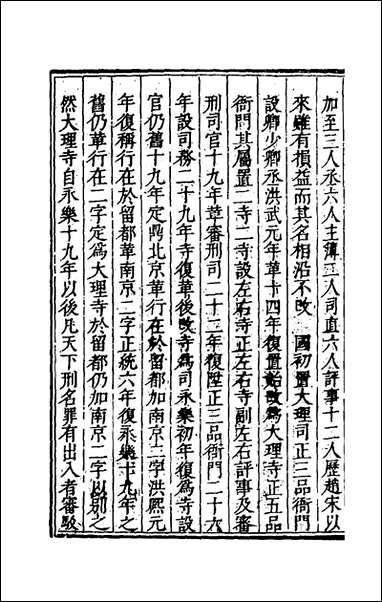 加至三人丞六人主簿二人司直六人評事十二人歷趙宋以
來雖有損益而其名相沿不改　國初置大理司正三品衙門
設卿少卿丞洪武元年革十四年復置始改為大理寺正五品
衙門其屬置二寺二寺設左右寺正左右寺副左右評事及審
刑司官十九年革審刑司二十二年復陞正三品衙門二十六
年設司務二十九年寺復革後改寺為司永樂初年復為寺設
官仍舊十九年定鼎北京革行在於留都加南京二字洪熙元
年復稱行在於留都革南京二字正統六年復永樂十九年之
舊仍革行在二字定為大理寺於留都仍加南京二字以別之
然大理寺自永樂十九年以後凡天下刑名罪有出入者審駁